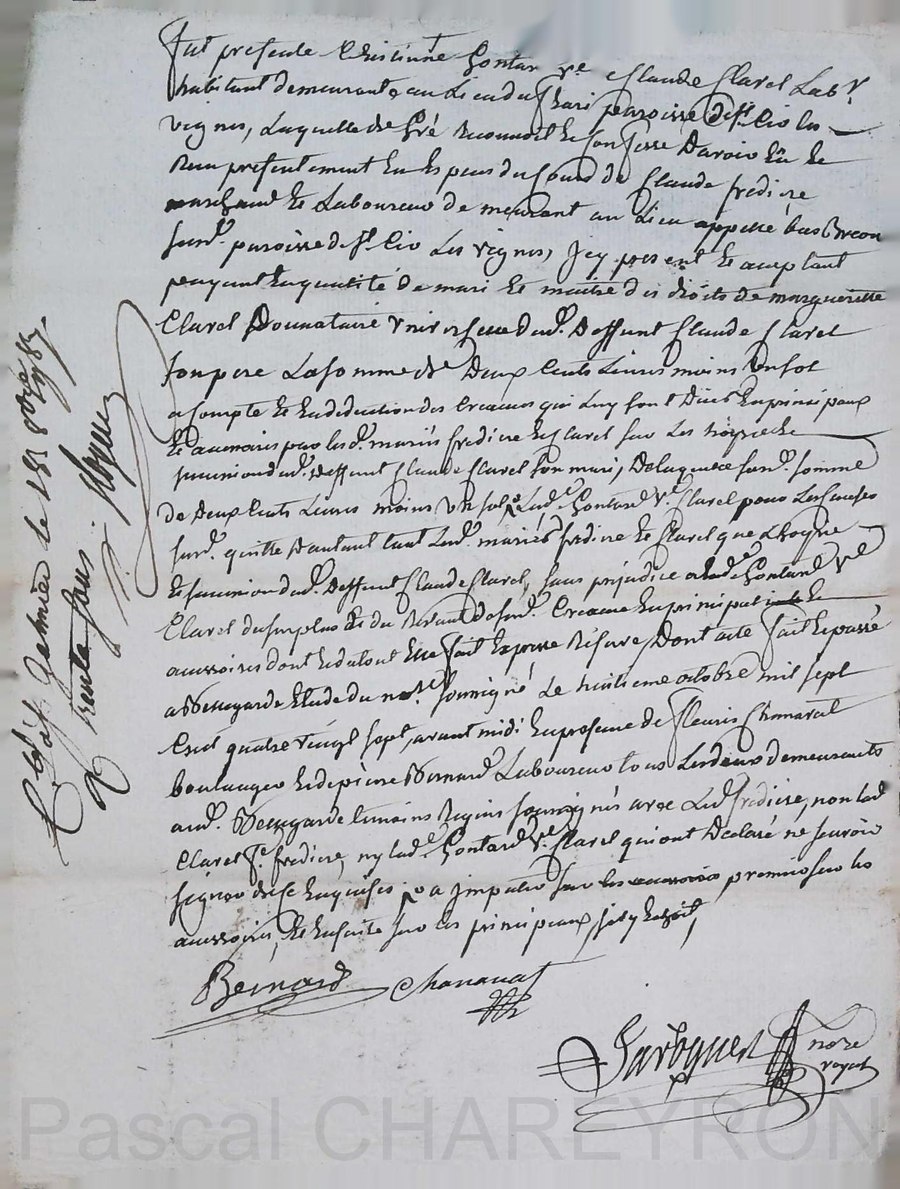 fut presente Christinne Gontar v.e Claude Clarel Lab.r
habitant demeurante au Lieu du paroisse de S.t Cir les
vignes, Laquelle de Gré Reconnoit et Confesse avoir Eû et
Reçu presentement En Espece du Cours de Claude fredire
marchand et Laboureur demeurant au Lieu appellé bas Brecon
susd. paroisse de S.t Cir Les vignes, Jcy present et aceptant
payant En qualité de mari et maitre des droits de marguerite
Clarel Donnataire universelle dud. Deffunt Claude Clarel
son pere La somme de Deux Cents Livres moins un sol
a Compte et En deduction des Creances qui Luy sont Dues En principaux
et par Lesd. mariés fredire et Clarel sur Les
dud. Deffunt Claude Clarel son mari, De laquelle susd. somme
de Deux Cents Livres moins un sol Lad. Gontard v.e Clarel pour Les Causes
susd. quitte D'autant tant Lesd. mariés fredire et Clarel que
dud. Deffunt Claude Clarel, sans préjudice a Lad.e Gontard v.e
Clarel du surplus et du Restant de susd. Creance En principal et
accessoires dont du tout Elle fait Expresse Réserve, Dont acte fait et passé
a Bellegarde Etude du not.re soussigné Le huitieme octobre mil sept
Cent quatre vingt sept, avant midi En presence de fleuris Chanavat
boulanger et de pierre Bernard Laboureur tous Lesdeux demeurants
aud. Bellegarde temoins Requis soussignés avec Led. fredire, non lad.
Clarel f.e fredire, ny lad.e Gontard v.e Clarel qui ont Declaré ne sçavoir
signer de ce Enquises a imputer sur les premier sur les
accessoires, et Ensuite sur les principaux,
Bernard Chanavat
not.re
royal
C.lé à St Galmier le 18 8bre 1787
R trente sous
Pascal CHAREYRON